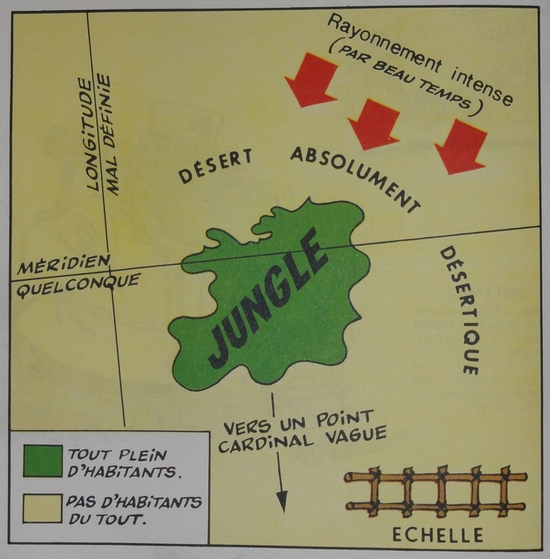 Rayonnement intense
(PAR BEAU TEMPS)
LONGITUDE
MAL DÉFINIE
DÉSERT ABSOLUMENT DÉSERTIQUE
MÉRIDIEN
QUELCONQUE
JUNGLE
VERS UN POINT
CARDINAL VAGUE
TOUT PLEIN
D'HABITANTS.
PAS D'HABITANTS
DU TOUT.
ECHELLE